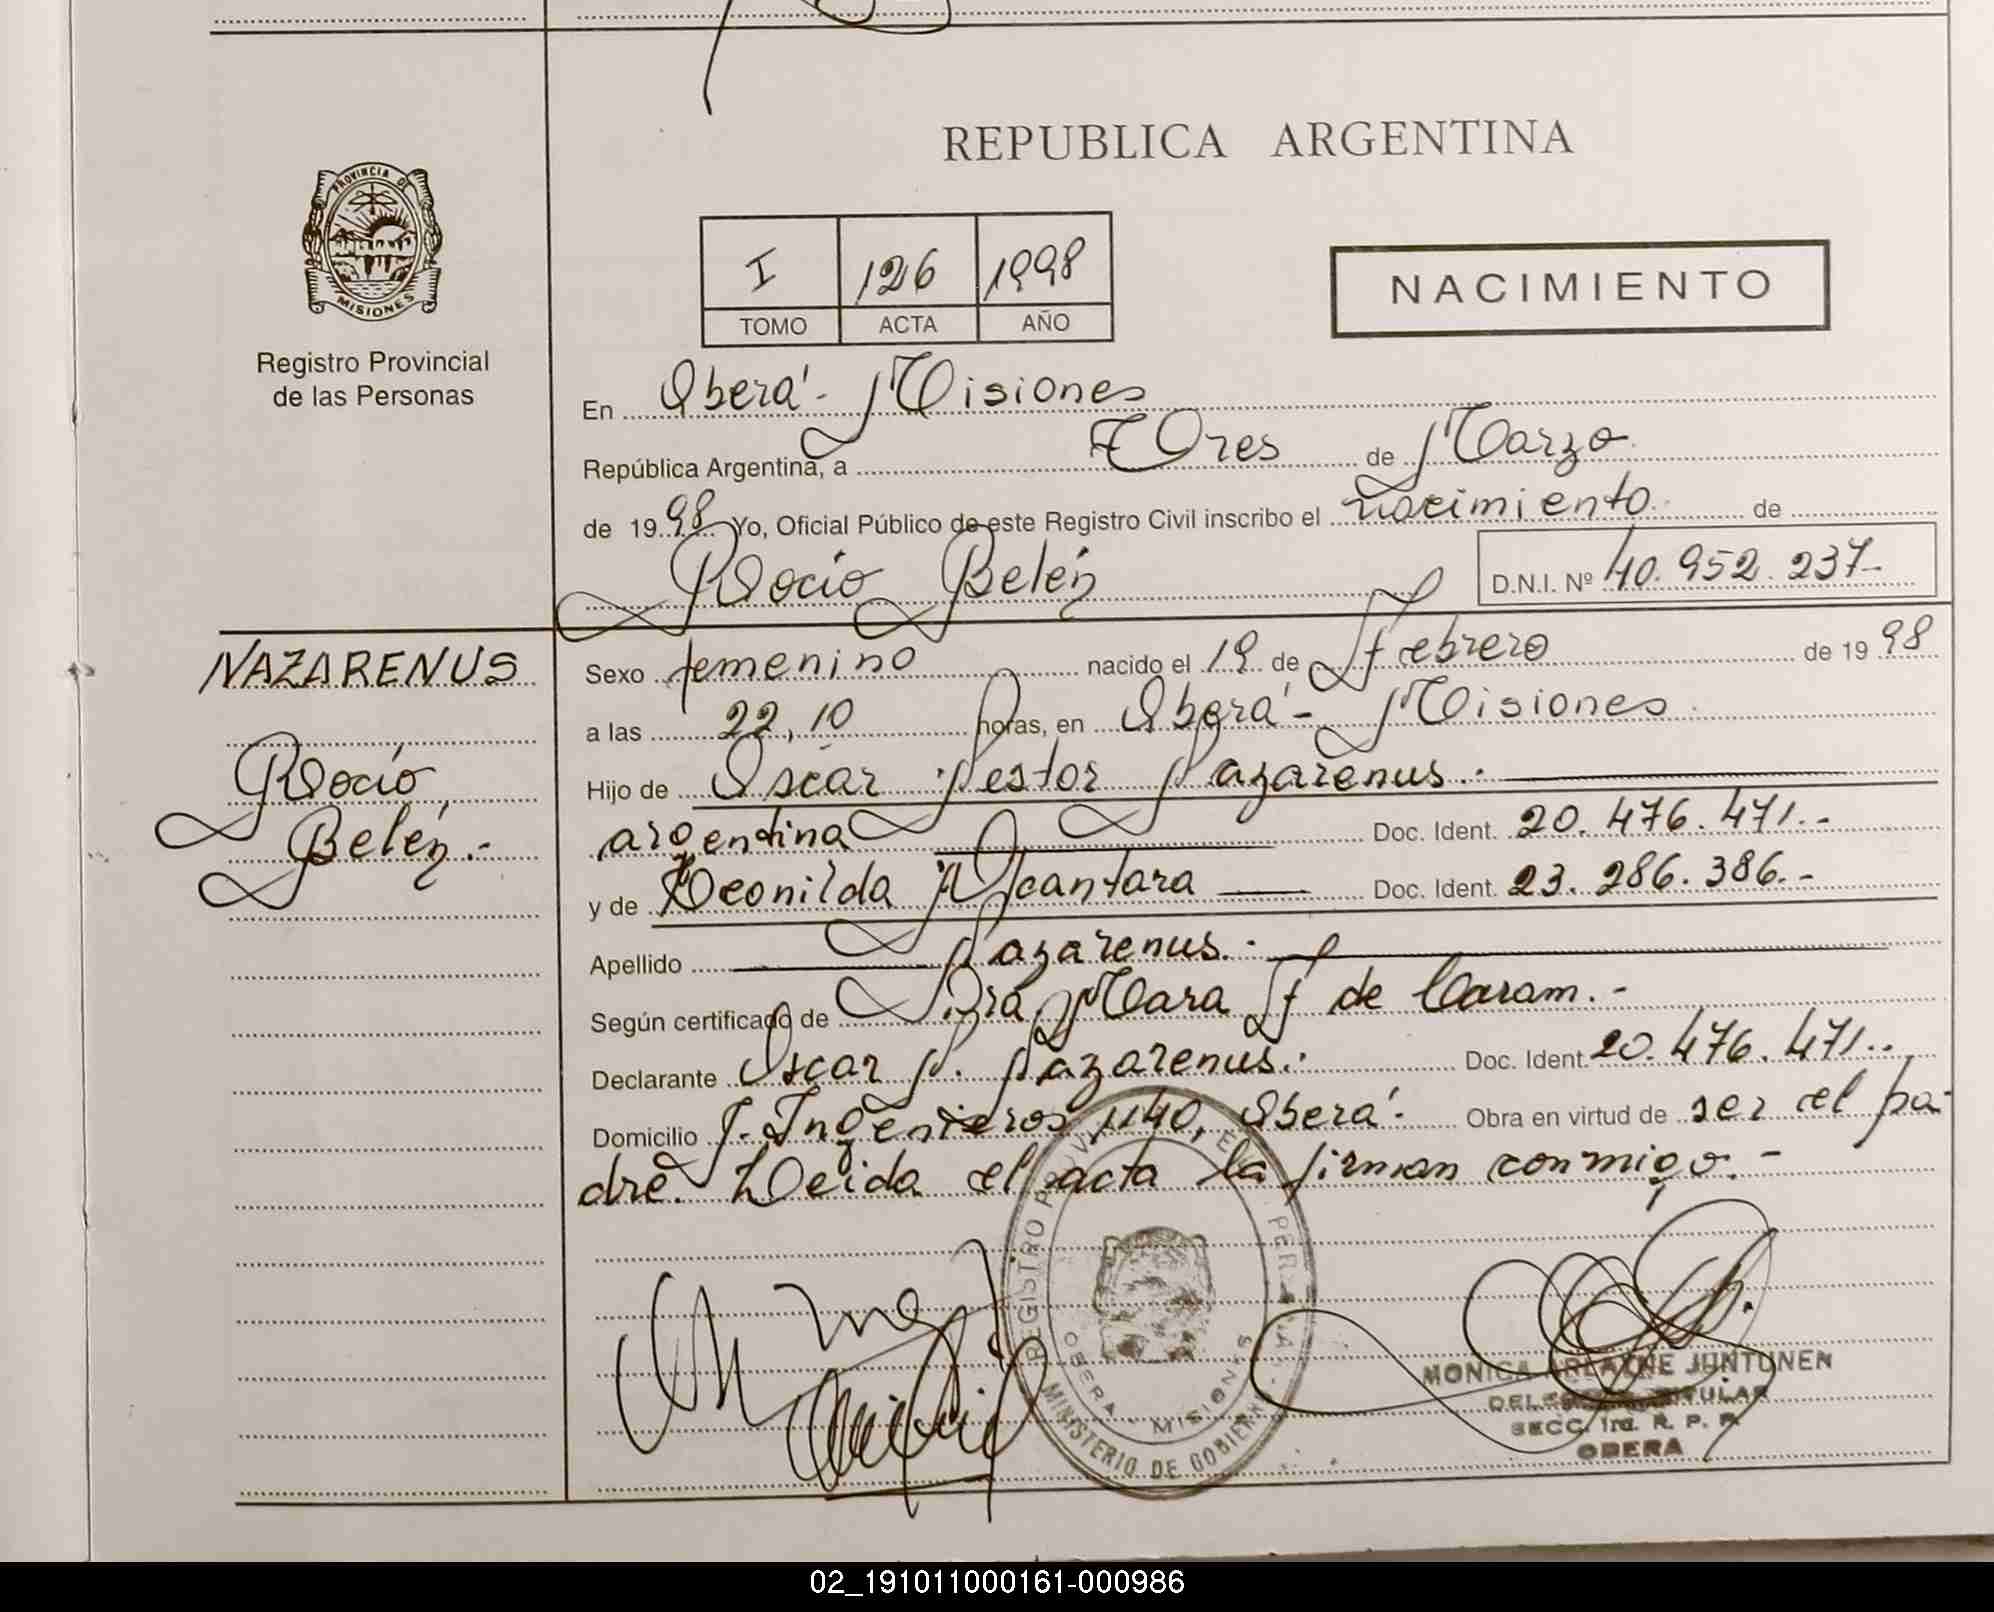 REPUBLICA ARGENTINA
PROVINCIA DE
MISIONES
Registro Provincial
de las Personas
I 126 1998
TOMO ACTA AÑO
NACIMIENTO
En Oberá - Misiones
República Argentina, a Tres de Marzo
de 1998 Yo, Oficial Público de este Registro Civil inscribo el nacimiento de
Rocío Belén D.N.I. Nº 40.952.237-
NAZARENUS
Rocío
Belén.-
Sexo femenino nacido el 19 de Febrero de 1998
a las 22,10 horas, en Oberá - Misiones
Hijo de Oscar Nestor Nazarenus.-
argentina Doc. Ident. 20.476.471.-
y de Leonilda Alcantara Doc. Ident. 23.286.386.-
Apellido Nazarenus.-
Según certificado de Dra Mara F de Caram.-
Declarante Oscar N. Nazarenus.- Doc. Ident. 20.476.471..
Domicilio J. Ingenieros 1140, Oberá.- Obra en virtud de ser el pa-
dre. Leida el acta la firman conmigo.-
REGISTRO PERSONAS
OBERA - MISIONES
MINISTERIO DE GOBIERNO
MONICA ARLAYNE JUNTUNEN
DELEGADA TITULAR
SECC. 1ra. R. P. P.
OBERA
02_191011000161-000986